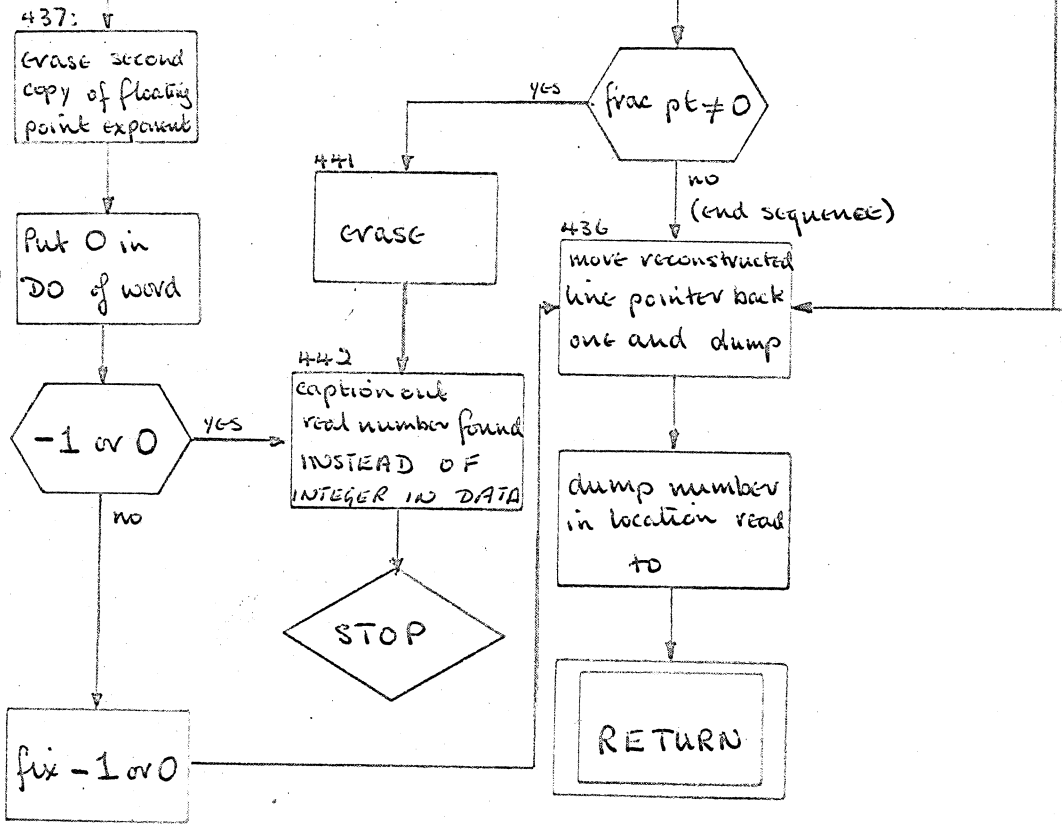 437:
erase second
copy of floating
point exponent
Put 0 in
D0 of word
-1 or 0
YES
no
fix -1 or 0
frac pt ≠ 0
YES
no
(end sequence)
441
erase
442
caption out
real number found
INSTEAD OF
INTEGER IN DATA
STOP
436
move reconstructed
line pointer back
one and dump
dump number
in location read
to
RETURN